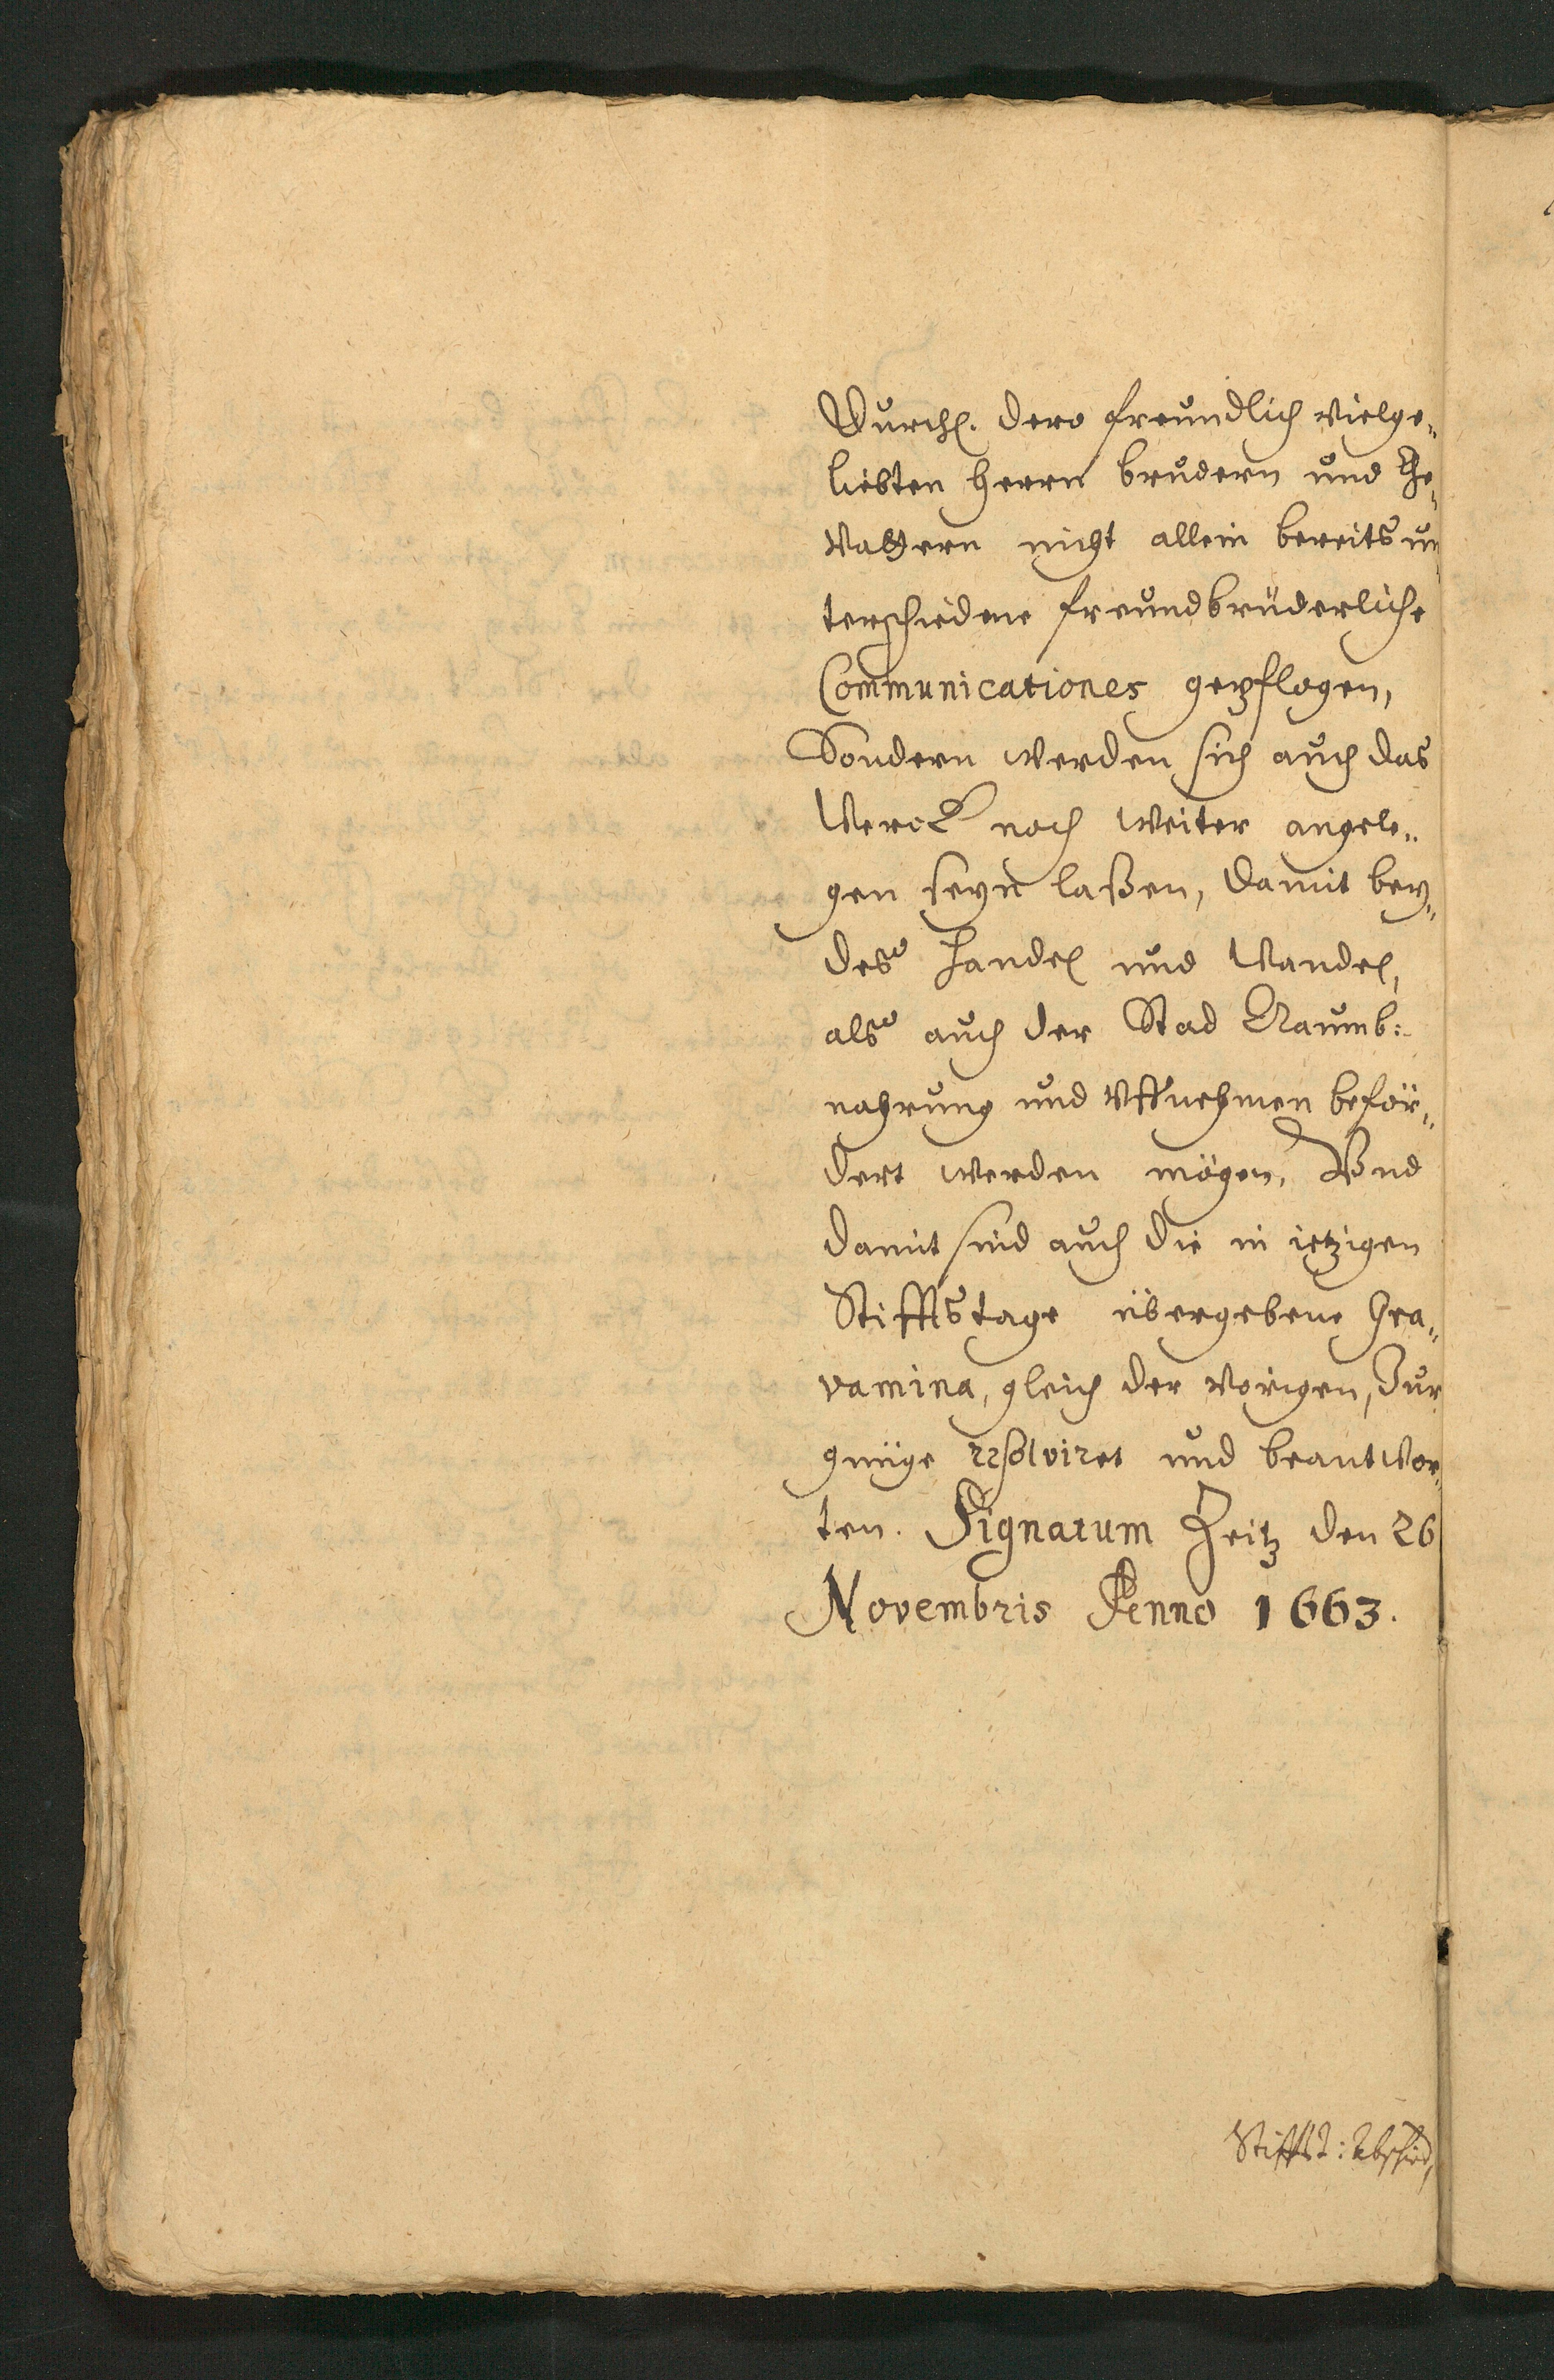 Durchl. dero freundlich vielge„
liebten Herrn brudern und Ge„
vattern nicht allein bereits un„
terschiedene freundbrüderliche
Communicationes gepflogen,
Sondern werden sich auch das
Werck noch weiter angele„
gen seyn laßen, damit bey„
des Handel und Wandel,
als auch der Stad Naumb:
nahrung und Uffnehmen beför„
dert werden mögen, Und
damit sind auch die in ietzigen
Stifftstage übergebene Gra„
vamina, gleich der vorigen, Zur
gnüge resolviret und beantwor„
ten. Signatum Zeitz den 26
Novembris Anno 1663.
Stiffts: Abschied,